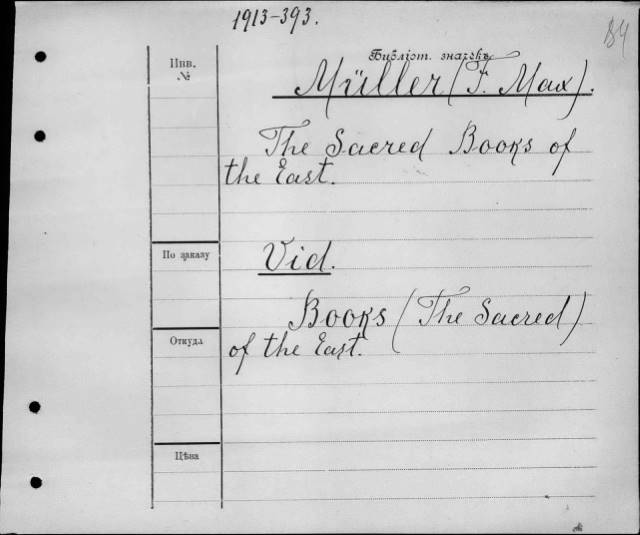 1913-393.
84
Инв.
№
Библіот. значекъ
Müller (F. Max).
The Sacred Books of
the East.
По заказу
Vid.
Books (The Sacred)
Откуда
of the East.
Цѣна